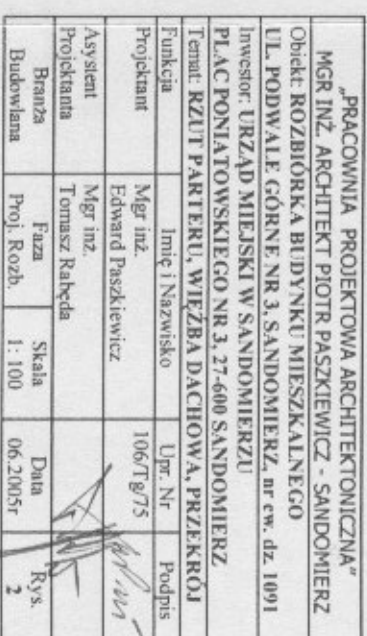 „PRACOWNIA PROJEKTOWA ARCHITEKTONICZNA”
MGR INŻ. ARCHITEKT PIOTR PASZKIEWICZ - SANDOMIERZ
Obiekt: ROZBIÓRKA BUDYNKU MIESZKALNEGO
UL. PODWALE GÓRNE NR 3. SANDOMIERZ, nr ew. dz. 1091
Inwestor: URZĄD MIEJSKI W SANDOMIERZU
PLAC PONIATOWSKIEGO NR 3, 27-600 SANDOMIERZ
Temat: RZUT PARTERU, WIĘŹBA DACHOWA, PRZEKRÓJ
Funkcja Imię i Nazwisko Upr. Nr Podpis
Projektant Mgr inż. Edward Paszkiewicz 106/Tg/75
Asystent Projektanta Mgr inż. Tomasz Rabęda
Branża Faza Skala Data Rys.
Budowlana Proj. Rozb. 1: 100 06.2005r 2